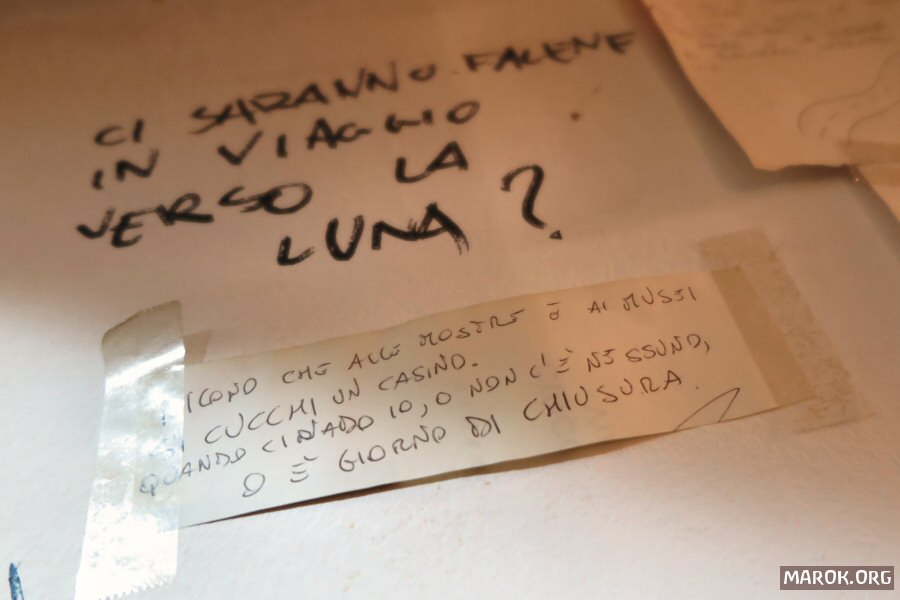 CI SARANNO FALENE
IN VIAGGIO
VERSO LA
LUNA?
DICONO CHE ALLE MOSTRE E AI MUSEI
SI CUCCHI UN CASINO.
QUANDO CI VADO IO, O NON C'È NESSUNO,
O È GIORNO DI CHIUSURA.
MAROK.ORG